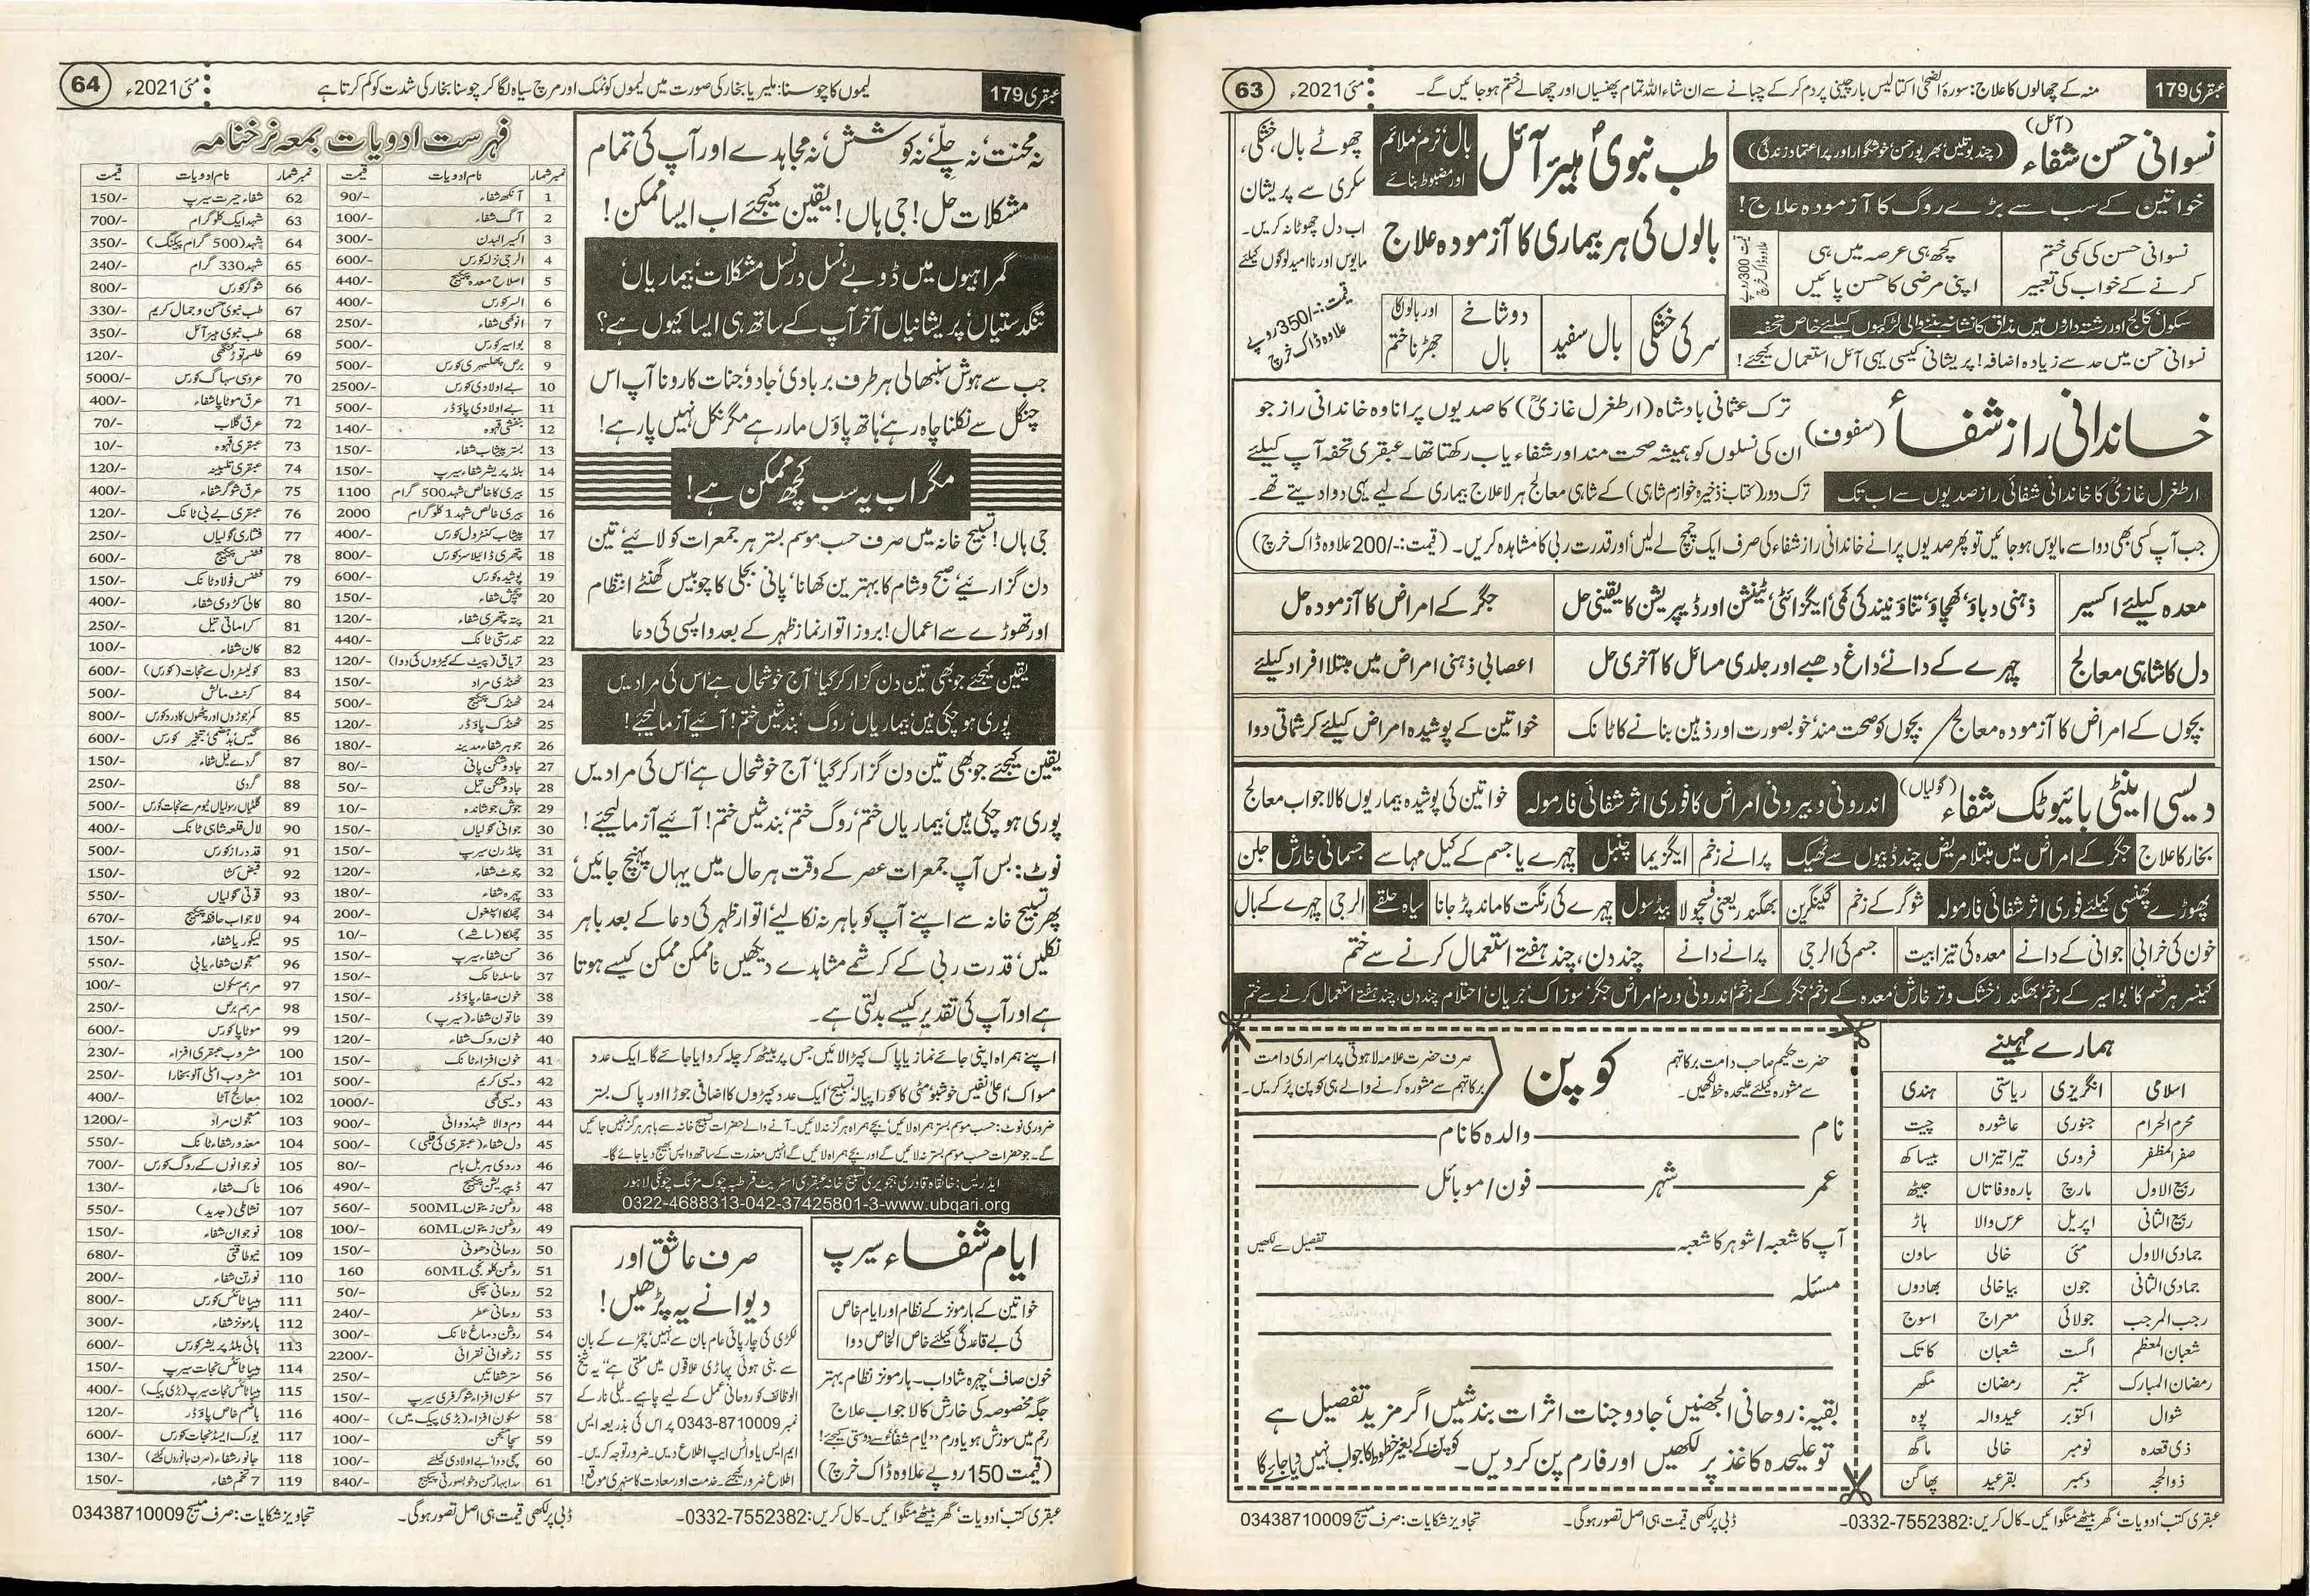 عبقری 179
منہ کے چھالوں کا علاج: سورۃ الضحیٰ اکتالیس بار چینی پر دم کرکے چبانے سے ان شاء اللہ تمام پھنسیاں اور چھالے ختم ہوجائیں گے۔
مئی 2021ء
63
نسوانی حسن شفاء (آئل)
(چند بوتلیں بھرپور حسن خوشگوار اور پراعتماد زندگی)
خواتین کے سب سے بڑے روگ کا آزمودہ علاج!
نسوانی حسن کی کمی ختم
کرنے کے خواب کی تعبیر
کچھ ہی عرصہ میں ہی
اپنی مرضی کا حسن پائیں
قیمت 300 روپے
علاوہ ڈاک خرچ
سکول، کالج اور رشتہ داروں میں مذاق کا نشانہ بننے والی لڑکیوں کیلئے خاص تحفہ
نسوانی حسن میں حد سے زیادہ اضافہ! پریشانی کیسی یہی آئل استعمال کیجئے!
طب نبوی ﷺ ہیئر آئل
بال نرم، ملائم
اور مضبوط بنائے
بالوں کی ہر بیماری کا آزمودہ علاج
سر کی خشکی
بال سفید
دوشاخے بال
اور بالوں کا جھڑنا ختم
چھوٹے بال، خشکی،
سکری سے پریشان
اب دل چھوٹا نہ کریں۔
مایوس اور ناامید لوگوں کیلئے
قیمت:-/350 روپے
علاوہ ڈاک خرچ
خاندانی راز شفاء (سفوف)
ترک عثمانی بادشاہ (ارطغرل غازیؒ) کا صدیوں پرانا وہ خاندانی راز جو
ان کی نسلوں کو ہمیشہ صحت مند اور شفاء یاب رکھتا تھا۔ عبقری تحفہ آپ کیلئے
ارطغرل غازیؒ کا خاندانی شفائی راز صدیوں سے اب تک
ترک دور (کتاب: ذخیرہ خوارزم شاہی) کے شاہی معالج ہر لاعلاج بیماری کے لیے یہی دوا دیتے تھے۔
جب آپ کسی بھی دوا سے مایوس ہوجائیں تو پھر صدیوں پرانے خاندانی راز شفاء کی صرف ایک چمچ لے لیں، اور قدرت ربی کا مشاہدہ کریں۔ (قیمت:-/200 علاوہ ڈاک خرچ)
معدہ کیلئے اکسیر
ذہنی دباؤ، کھچاؤ، تناؤ، نیند کی کمی، اینگزائٹی، ٹینشن اور ڈیپریشن کا یقینی حل
جگر کے امراض کا آزمودہ حل
دل کا شاہی معالج
چہرے کے دانے، داغ دھبے اور جلدی مسائل کا آخری حل
اعصابی ذہنی امراض میں مبتلا افراد کیلئے
بچوں کے امراض کا آزمودہ معالج / بچوں کو صحت مند، خوبصورت اور ذہین بنانے کا ٹانک
خواتین کے پوشیدہ امراض کیلئے کرشماتی دوا
دیسی اینٹی بائیوٹک شفاء (گولیاں)
اندرونی و بیرونی امراض کا فوری اثر شفائی فارمولہ
خواتین کی پوشیدہ بیماریوں کا لاجواب معالج
بخار کا علاج جگر کے امراض میں مبتلا مریض چند ڈبیوں سے ٹھیک پرانے زخم ایگزیما چنبل چہرے یا جسم کے کیل مہاسے جسمانی خارش جلن
پھوڑے پھنسی کیلئے فوری اثر شفائی فارمولہ شوگر کے زخم گینگرین بھگندر یعنی فسچولا بیڈ سول چہرے کی رنگت کا ماند پڑ جانا سیاہ حلقے الرجی چہرے کے بال
خون کی خرابی جوانی کے دانے معدہ کی تیزابیت جسم کی الرجی پرانے دانے چند دن، چند ہفتے استعمال کرنے سے ختم
کینسر ہر قسم کا، بواسیر کے زخم، بھگندر، خشک و تر خارش، معدہ کے زخم، جگر کے زخم، اندرونی ورم، امراض جگر، سوزاک، جریان، احتلام چند دن، چند ہفتے استعمال کرنے سے ختم
ہمارے مہینے
اسلامی انگریزی ریاستی ہندی
محرم الحرام جنوری عاشورہ چیت
صفر المظفر فروری تیراتیزاں بیساکھ
ربیع الاول مارچ بارہ وفاتاں جیٹھ
ربیع الثانی اپریل عرس والا ہاڑ
جمادی الاول مئی خالی ساون
جمادی الثانی جون بیاخالی بھادوں
رجب المرجب جولائی معراج اسوج
شعبان المعظم اگست شعبان کاتک
رمضان المبارک ستمبر رمضان مگھر
شوال اکتوبر عیدوالہ پوہ
ذی قعدہ نومبر خالی ماگھ
ذوالحجہ دسمبر بقرعید پھاگن
حضرت حکیم صاحب دامت برکاتہم
سے مشورہ کیلئے علیحدہ خط لکھیں۔
کوپن
صرف حضرت علامہ لاہوتی پراسراری دامت
برکاتہم سے مشورہ کرنے والے ہی کوپن پُر کریں۔
نام والدہ کا نام
عمر شہر فون/موبائل
آپ کا شعبہ/شوہر کا شعبہ تفصیل سے لکھیں
مسئلہ
بقیہ: روحانی الجھنیں، جادو جنات اثرات بندشیں اگر مزید تفصیل ہے
تو علیحدہ کاغذ پر لکھیں اور فارم پن کردیں۔ کوپن کے بغیر خطوط کا جواب نہیں دیا جائے گا
عبقری کتب، ادویات، گھر بیٹھے منگوائیں۔ کال کریں: 0332-7552382-
ڈبی پر لکھی قیمت ہی اصل تصور ہوگی۔
تجاویز شکایات: صرف میسج 03438710009
عبقری 179
لیموں کا چوسنا: ملیریا بخار کی صورت میں لیموں کو نمک اور مرچ سیاہ لگا کر چوسنا بخار کی شدت کو کم کرتا ہے
مئی 2021ء
64
نہ محنت، نہ چلے، نہ کوشش، نہ مجاہدے اور آپ کی تمام
مشکلات حل! جی ہاں! یقین کیجئے اب ایسا ممکن!
گمراہیوں میں ڈوبے، نسل در نسل مشکلات، بیماریاں،
تنگدستیاں، پریشانیاں آخر آپ کے ساتھ ہی ایسا کیوں ہے؟
جب سے ہوش سنبھالی ہر طرف بربادی، جادو، جنات کا رونا آپ اس
چنگل سے نکلنا چاہ رہے، ہاتھ پاؤں مار رہے مگر نکل نہیں پارہے!
مگر اب یہ سب کچھ ممکن ہے!
جی ہاں! تسبیح خانہ میں صرف حسب موسم بستر ہر جمعرات کو لائیے، تین
دن گزاریئے، صبح و شام کا بہترین کھانا، پانی بجلی کا چوبیس گھنٹے انتظام
اور تھوڑے سے اعمال! بروز اتوار نماز ظہر کے بعد واپسی کی دعا
یقین کیجئے جو بھی تین دن گزار کر گیا، آج خوشحال ہے، اس کی مرادیں
پوری ہوچکی ہیں، بیماریاں، روگ، بندشیں ختم! آئیے آزمالیجئے!
یقین کیجئے جو بھی تین دن گزار کر گیا، آج خوشحال ہے، اس کی مرادیں
پوری ہوچکی ہیں، بیماریاں ختم، روگ ختم، بندشیں ختم! آئیے آزمالیجئے!
نوٹ: بس آپ جمعرات عصر کے وقت ہر حال میں یہاں پہنچ جائیں،
پھر تسبیح خانہ سے اپنے آپ کو باہر نہ نکالیے، اتوار ظہر کی دعا کے بعد باہر
نکلیں، قدرت ربی کے کرشمے مشاہدے دیکھیں ناممکن، ممکن کیسے ہوتا
ہے اور آپ کی تقدیر کیسے بدلتی ہے۔
اپنے ہمراہ اپنی جائے نماز یا پاک کپڑا لائیں جس پر بیٹھ کر چلہ کروایا جائے گا۔ ایک عدد
مسواک، اعلیٰ نفیس خوشبو، مٹی کا کورا پیالہ، تسبیح، ایک عدد کپڑوں کا اضافی جوڑا اور پاک بستر
ضروری نوٹ: حسب موسم بستر ہمراہ لائیں، بچے ہمراہ ہرگز نہ لائیں۔ آنے والے حضرات تسبیح خانہ سے باہر ہرگز نہیں جائیں
گے۔ جو حضرات حسب موسم بستر نہ لائیں گے اور بچے ہمراہ لائیں گے انہیں معذرت کے ساتھ واپس بھیج دیا جائے گا۔
ایڈریس: خانقاہ قادری ہجویری تسبیح خانہ عبقری اسٹریٹ قرطبہ چوک مزنگ چونگی لاہور
0322-4688313-042-37425801-3-www.ubqari.org
ایام شفاء سیرپ
خواتین کے ہارمونز کے نظام اور ایام خاص
کی بے قاعدگی کیلئے خاص الخاص دوا
خون صاف، چہرہ شاداب۔ ہارمونز نظام بہتر
جگہ مخصوصہ کی خارش کا لاجواب علاج
رحم میں سوزش ہو یا ورم "ایام شفاء" سے دوستی کیجئے!
(قیمت 150 روپے علاوہ ڈاک خرچ)
صرف عاشق اور
دیوانے یہ پڑھیں!
لکڑی کی چارپائی عام بان سے نہیں، چمڑے کے بان
سے بنی ہوئی پہاڑی علاقوں میں ملتی ہے، یہ شیخ
الوظائف کو روحانی عمل کے لیے چاہیے۔ ٹیلی نار کے
نمبر 0343-8710009 پر اس کی بذریعہ ایس
ایم ایس یا واٹس ایپ اطلاع دیں۔ ضرور توجہ کریں۔
اطلاع ضرور کیجئے۔ خدمت اور سعادت کا سنہری موقع!
فہرست ادویات بمعہ نرخنامہ
نمبر شمار نام ادویات قیمت
1 آنکھ شفاء 90/-
2 آگ شفاء 100/-
3 اکسیر البدن 300/-
4 الرجی نزلہ کورس 600/-
5 اصلاح معدہ پیکیج 440/-
6 السر کورس 400/-
7 انوکھی شفاء 250/-
8 بواسیر کورس 500/-
9 برص پھلبہری کورس 500/-
10 بے اولادی کورس 2500/-
11 بے اولادی پاؤڈر 500/-
12 بنفشی قہوہ 140/-
13 بستر پیشاب شفاء 150/-
14 بلڈ پریشر شفاء سیرپ 150/-
15 بیری کا خالص شہد 500 گرام 1100
16 بیری خالص شہد 1 کلوگرام 2000
17 پیشاب کنٹرول کورس 400/-
18 پتھری ڈائیلاسز کورس 800/-
19 پوشیدہ کورس 600/-
20 پیچش شفاء 150/-
21 پتہ پتھری شفاء 120/-
22 تندرستی ٹانک 440/-
23 تریاق (پیٹ کے کیڑوں کی دوا) 120/-
23 ٹھنڈی مراد 150/-
24 ٹھنڈک پیکیج 500/-
25 ٹھنڈک پاؤڈر 120/-
26 جوہر شفاء مدینہ 180/-
27 جادو شکن پانی 80/-
28 جادو شکن تیل 50/-
29 جوش جوشاندہ 10/-
30 جوانی گولیاں 150/-
31 چلڈرن سیرپ 150/-
32 چوٹ شفاء 120/-
33 چہرہ شفاء 180/-
34 چھلکا اسپغول 200/-
35 چھلکا (ساشے) 10/-
36 حسن شفاء سیرپ 150/-
37 حاملہ ٹانک 150/-
38 خون صفاء پاؤڈر 150/-
39 خاتون شفاء (سیرپ) 150/-
40 خون روک شفاء 120/-
41 خون افزاء ٹانک 150/-
42 دیسی کریم 500/-
43 دیسی گھی 1000/-
44 دم والا شہد دوائی 900/-
45 دل شفاء (عبقری کی قلبی) 500/-
46 دردی ہربل بام 80/-
47 ڈیپریشن پیکیج 490/-
48 روغن زیتون 500ML 560/-
49 روغن زیتون 60ML 100/-
50 روحانی دھونی 150/-
51 روغن کلونجی 60ML 160
52 روحانی پھکی 50/-
53 روحانی عطر 240/-
54 روشن دماغ ٹانک 300/-
55 زعفرانی نقرائی 2200/-
56 ستر شفائیں 250/-
57 سکون افزاء شوگر فری سیرپ 150/-
58 سکون افزاء (بڑی پیک میں) 400/-
59 سچا منجن 100/-
60 سچی دوا بے اولادی کیلئے 100/-
61 سدا بہار حسن و خوبصورتی پیکیج 840/-
نمبر شمار نام ادویات قیمت
62 شفاء حیرت سیرپ 150/-
63 شہد ایک کلوگرام 700/-
64 شہد (500 گرام پیکنگ) 350/-
65 شہد 330 گرام 240/-
66 شوگر کورس 800/-
67 طب نبوی حسن و جمال کریم 330/-
68 طب نبوی ہیئر آئل 350/-
69 طلسم توڑ کنگھی 120/-
70 عروسی سہاگ کورس 5000/-
71 عرق موٹاپا شفاء 400/-
72 عرق گلاب 70/-
73 عبقری قہوہ 10/-
74 عبقری تلبینہ 120/-
75 عرق شوگر شفاء 400/-
76 عبقری بے بی ٹانک 120/-
77 فشاری گولیاں 250/-
78 فٹنس پیکیج 600/-
79 فٹنس فولاد ٹانک 150/-
80 کالی کڑوی شفاء 400/-
81 کراماتی تیل 250/-
82 کان شفاء 100/-
83 کولیسٹرول سے نجات (کورس) 600/-
84 کرنٹ مالش 500/-
85 کمر جوڑوں اور پٹھوں کا درد کورس 800/-
86 گیس بدہضمی، تبخیر کورس 600/-
87 گردے فیل شفاء 150/-
88 گردی 250/-
89 گلٹیاں رسولیاں ٹیومر سے نجات کورس 500/-
90 لال قلعہ شاہی ٹانک 400/-
91 قد دراز کورس 500/-
92 قبض کشا 150/-
93 قوتی گولیاں 550/-
94 لاجواب حافظہ پیکیج 670/-
95 لیکوریا شفاء 150/-
96 معجون شفاء یابی 550/-
97 مرہم سکون 100/-
98 مرہم برص 250/-
99 موٹاپا کورس 600/-
100 مشروب عبقری افزاء 230/-
101 مشروب املی آلو بخارا 250/-
102 معالج آٹا 400/-
103 معجون مراد 1200/-
104 معذور شفاء ٹانک 550/-
105 نوجوانوں کے روگ کورس 700/-
106 ناک شفاء 130/-
107 نشاطی (جدید) 550/-
108 نوجوان شفاء 150/-
109 نیوطاقتی 680/-
110 نورتن شفاء 200/-
111 ہیپاٹائٹس کورس 800/-
112 ہارمونز شفاء 300/-
113 ہائی بلڈ پریشر کورس 600/-
114 ہیپاٹائٹس نجات سیرپ 150/-
115 ہیپاٹائٹس نجات سیرپ (بڑی پیک) 400/-
116 ہاضم خاص پاؤڈر 120/-
117 یورک ایسڈ نجات کورس 600/-
118 جانور شفاء (صرف جانوروں کیلئے) 130/-
119 7 تخم شفاء 150/-
عبقری کتب، ادویات، گھر بیٹھے منگوائیں۔ کال کریں: 0332-7552382-
ڈبی پر لکھی قیمت ہی اصل تصور ہوگی۔
تجاویز شکایات: صرف میسج 03438710009